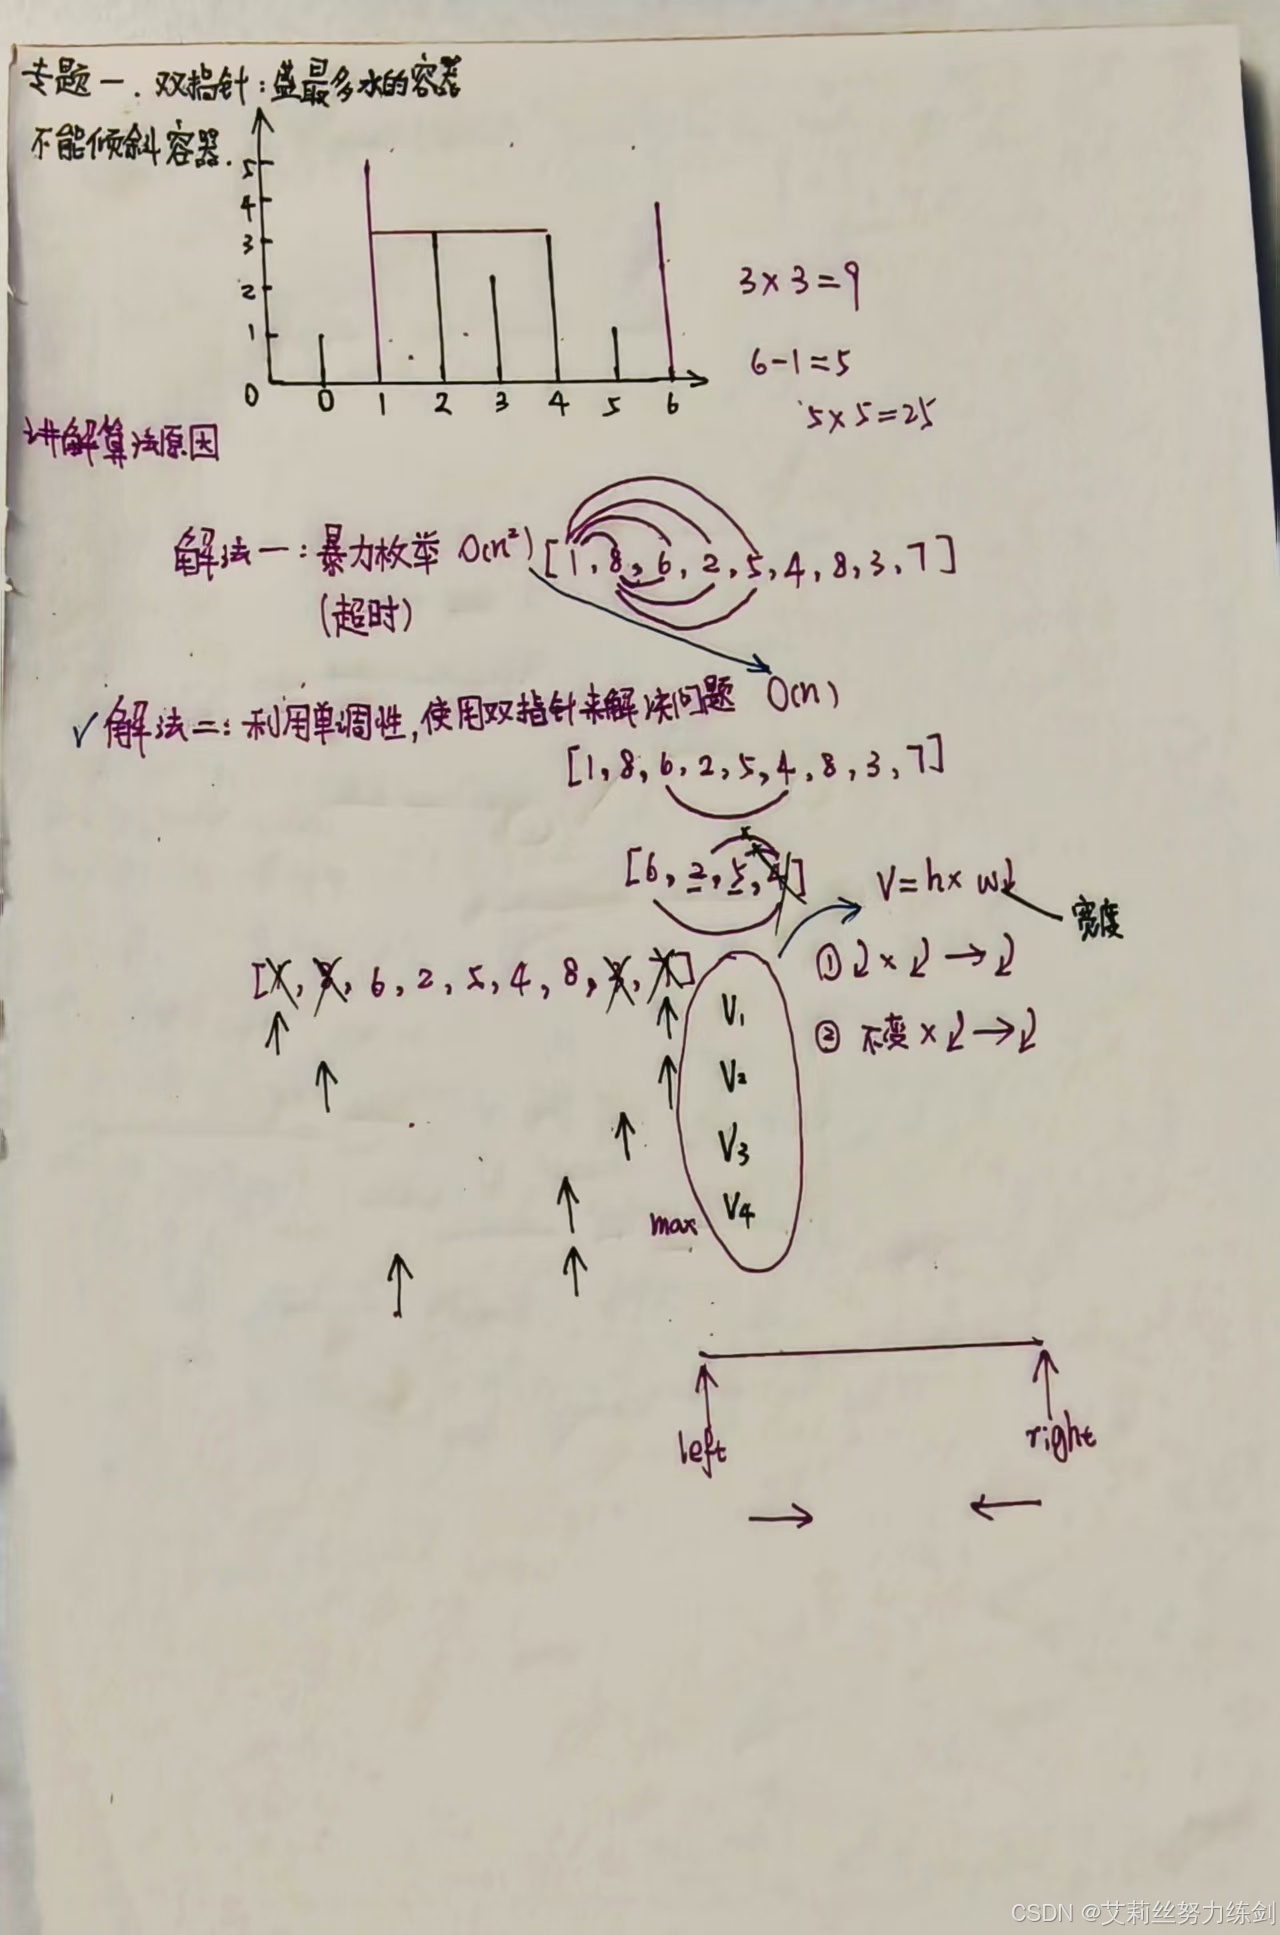 专题一.双指针:盛最多水的容器
不能倾斜容器.
5
4
3
2
1
0
0 1 2 3 4 5 6
3×3=9
6-1=5
5×5=25
讲解算法原因
解法一:暴力枚举 O(n²) [1,8,6,2,5,4,8,3,7]
(超时)
✓解法二:利用单调性,使用双指针来解决问题 O(n)
[1,8,6,2,5,4,8,3,7]
[6,2,5,4]
V=h×w↓
宽度
①↓×↓→↓
②不变×↓→↓
[1,8,6,2,5,4,8,3,7]
V1
V2
V3
V4
max
left right
CSDN @艾莉丝努力练剑